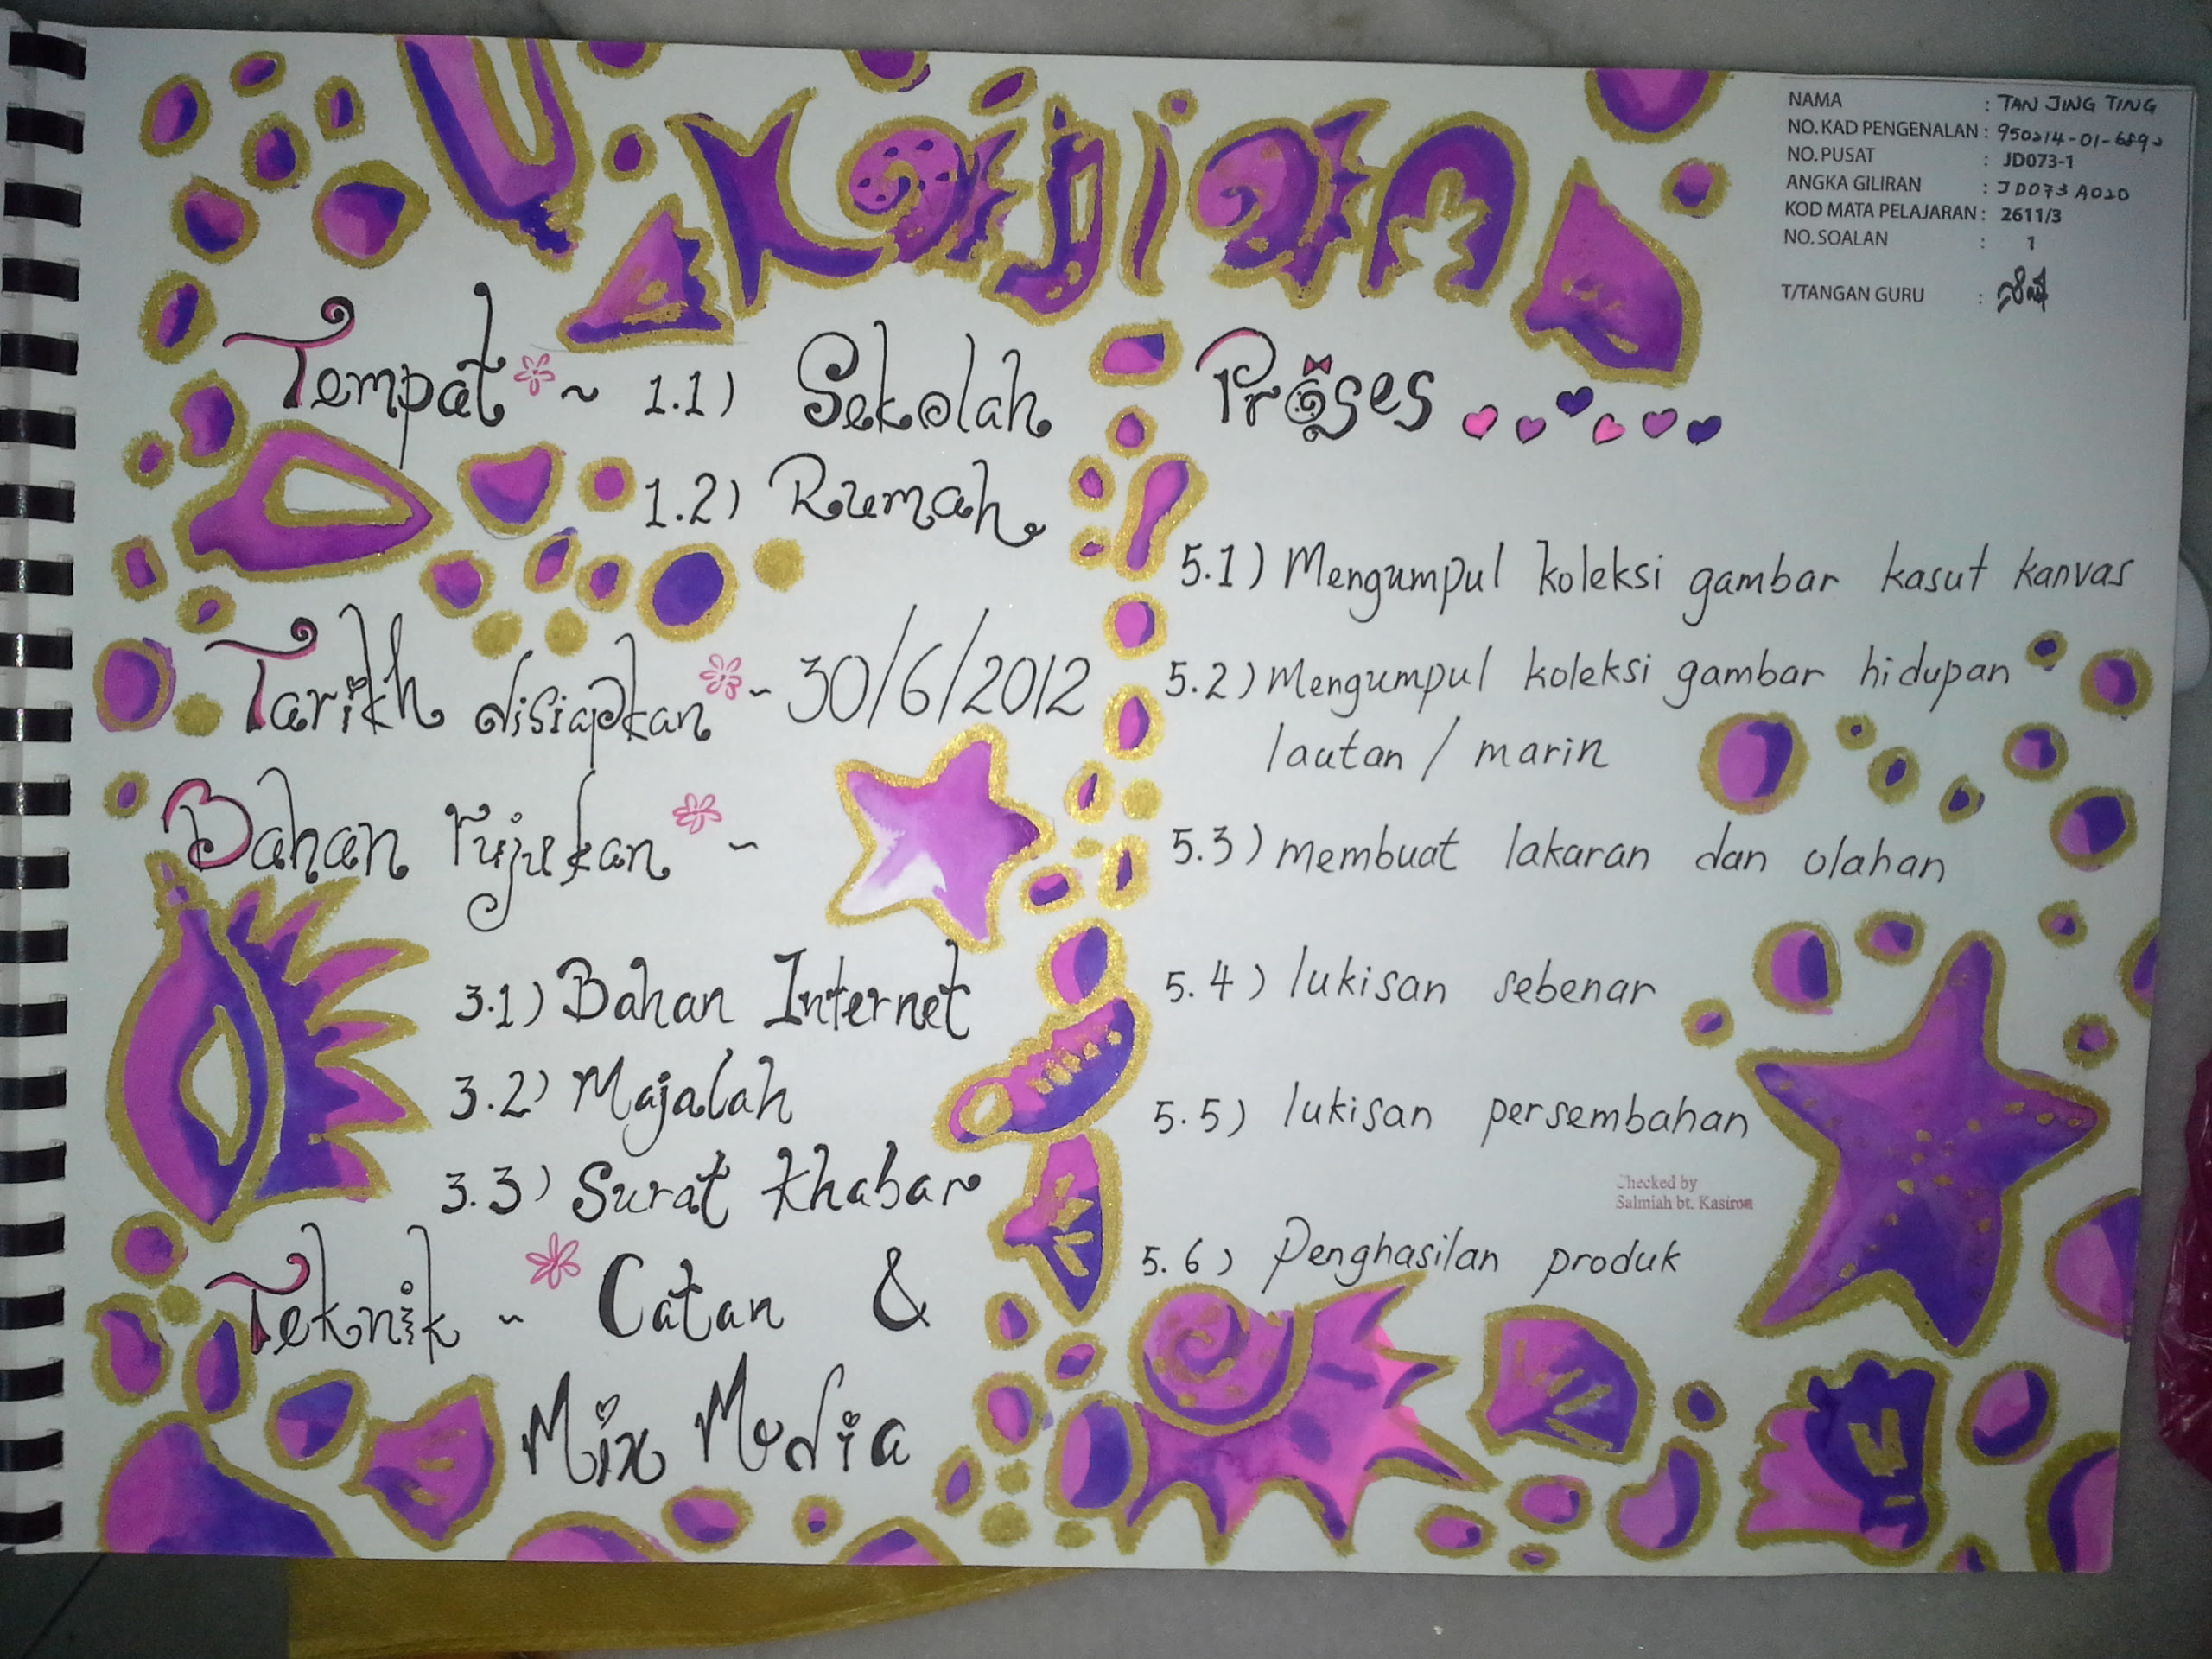 Kajian
NAMA : TAN JING TING
NO. KAD PENGENALAN : 950214-01-6890
NO. PUSAT : JD073-1
ANGKA GILIRAN : JD073A020
KOD MATA PELAJARAN : 2611/3
NO. SOALAN : 1
T/TANGAN GURU :
Tempat ~ 1.1) Sekolah
1.2) Rumah
Tarikh disiapkan ~ 30/6/2012
Bahan rujukan ~
3.1) Bahan Internet
3.2) Majalah
3.3) Surat Khabar
Teknik ~ Catan &
Mix Media
Proses
5.1) Mengumpul koleksi gambar kasut kanvas
5.2) Mengumpul koleksi gambar hidupan
lautan / marin
5.3) membuat lakaran dan olahan
5.4) lukisan sebenar
5.5) lukisan persembahan
Checked by
Salmiah bt. Kasiron
5.6) Penghasilan produk